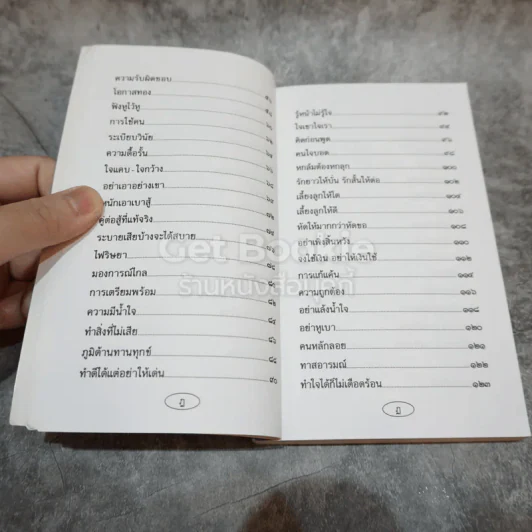 ความรับผิดชอบ
โอกาสทอง
ฟังหูไว้หู
การใช้คน
ระเบียบวินัย
ความดื้อรั้น
ใจแคบ - ใจกว้าง
อย่าเอาอย่างเขา
หนักเอาเบาสู้
คู่ต่อสู้ที่แท้จริง
ระบายเสียบ้างจะได้สบาย
ไฟริษยา
มองการณ์ไกล
การเตรียมพร้อม
ความมีน้ำใจ
ทำสิ่งที่ไม่เสีย
ภูมิต้านทานทุกข์
ทำดีได้แต่อย่าให้เด่น ๙๐
รู้หน้าไม่รู้ใจ ๙๒
ใจเขาใจเรา
คิดก่อนพูด ๙๖
คนใจบอด ๙๘
หกล้มต้องหกลุก ๑๐๐
รักยาวให้บั่น รักสั้นให้ต่อ ๑๐๒
เลี้ยงลูกให้โต ๑๐๔
เลี้ยงลูกให้ดี ๑๐๖
หัดให้มากกว่าหัดขอ ๑๐๘
อย่าเพิ่งสิ้นหวัง ๑๑๐
จงใช้เงิน อย่าให้เงินใช้ ๑๑๒
การแก้แค้น ๑๑๔
ความถูกต้อง ๑๑๖
อย่าแล้งน้ำใจ ๑๑๘
อย่าหูเบา ๑๒๐
คนหลักลอย ๑๒๑
ทาสอารมณ์ ๑๒๒
ทำใจได้ก็ไม่เดือดร้อน ๑๒๓
Get Bookie
ร้านหนังสือมุดกี้